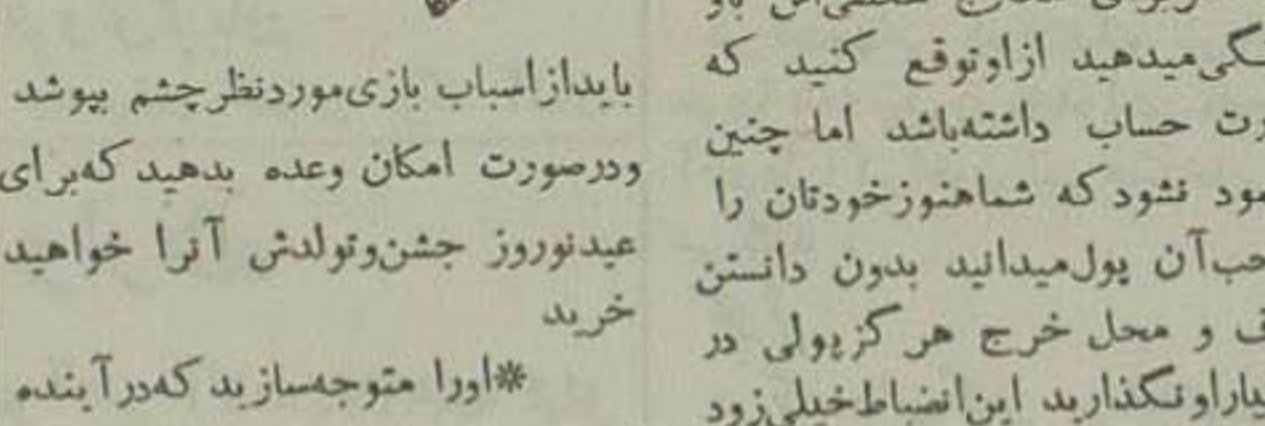 کنید که
میدهید ازاوتوقع کنید که
حساب داشته‌باشد اما چنین
نشود که شماهنوزخودتان را
آن پول‌میدانید بدون دانستن
و محل خرج هرگزپولی در
اونگذارید این‌انضباط‌خیلی‌زود
بایدازاسباب بازی‌موردنظرچشم بپوشد
ودرصورت امکان وعده بدهید که‌برای
عیدنوروز جشن‌وتولدش آنرا خواهید
خرید
*اورا متوجه‌سازید که‌درآینده